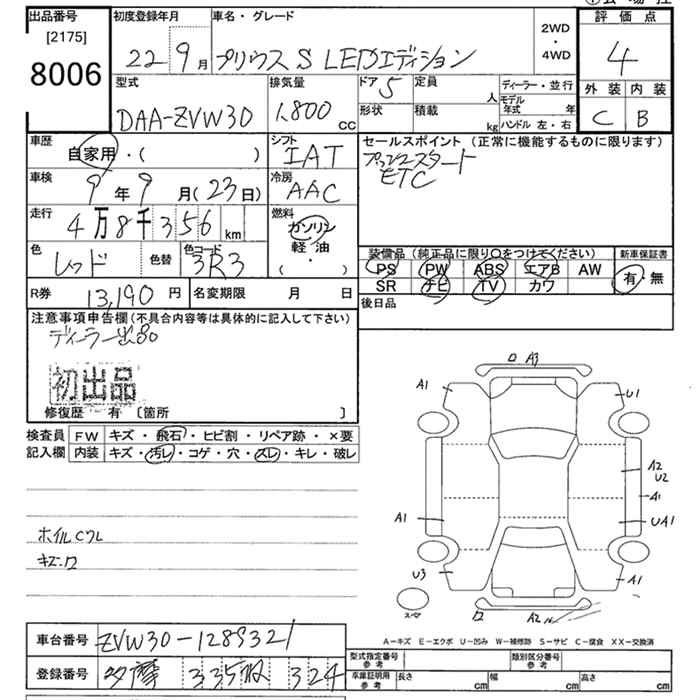 出品番号
[2175]
8006
初度登録年月
22 9月
車名・グレード
プリウス S LEDエディション
2WD
・
4WD
評価点
4
外装 内装
C B
型式
DAA-ZVW30
排気量
1,800 cc
ドア 5
形状
定員 人
積載 kg
ディーラー・並行
モデル年式 年
ハンドル 左・右
車歴
自家用・( )
シフト
IAT
セールスポイント (正常に機能するものに限ります)
プッシュスタート
ETC
車検
9年9月(23日)
冷房
AAC
走行
4万8千356km
燃料
ガソリン
軽・油
( ・ )
色
レッド
色替
色コード
3R3
装備品 (純正品に限り○をつけてください)
PS PW ABS エアB AW
SR ナビ TV カワ
新車保証書
有・無
R券
13,190円
名変期限 月 日
後日品
注意事項申告欄(不具合内容等は具体的に記入して下さい)
ディーラー出品
初出品
修復歴 有 [箇所 ]
検査員
記入欄
FW キズ・飛石・ヒビ割・リペア跡・×要
内装 キズ・汚レ・コゲ・穴・スレ・キレ・破レ
ホイルCワレ
A3
A1
U1
A2
U2
A1
A1
UA1
U3
A1
A2
スペア
A-キズ E-エクボ U-凹み W-補修跡 S-サビ C-腐食 XX-交換済
車台番号
ZVW30-1289321
登録番号
多摩 335 324
型式指定番号
参考
類別区分番号
参考
車庫証明用
参考
長さ cm
幅 cm
高さ cm